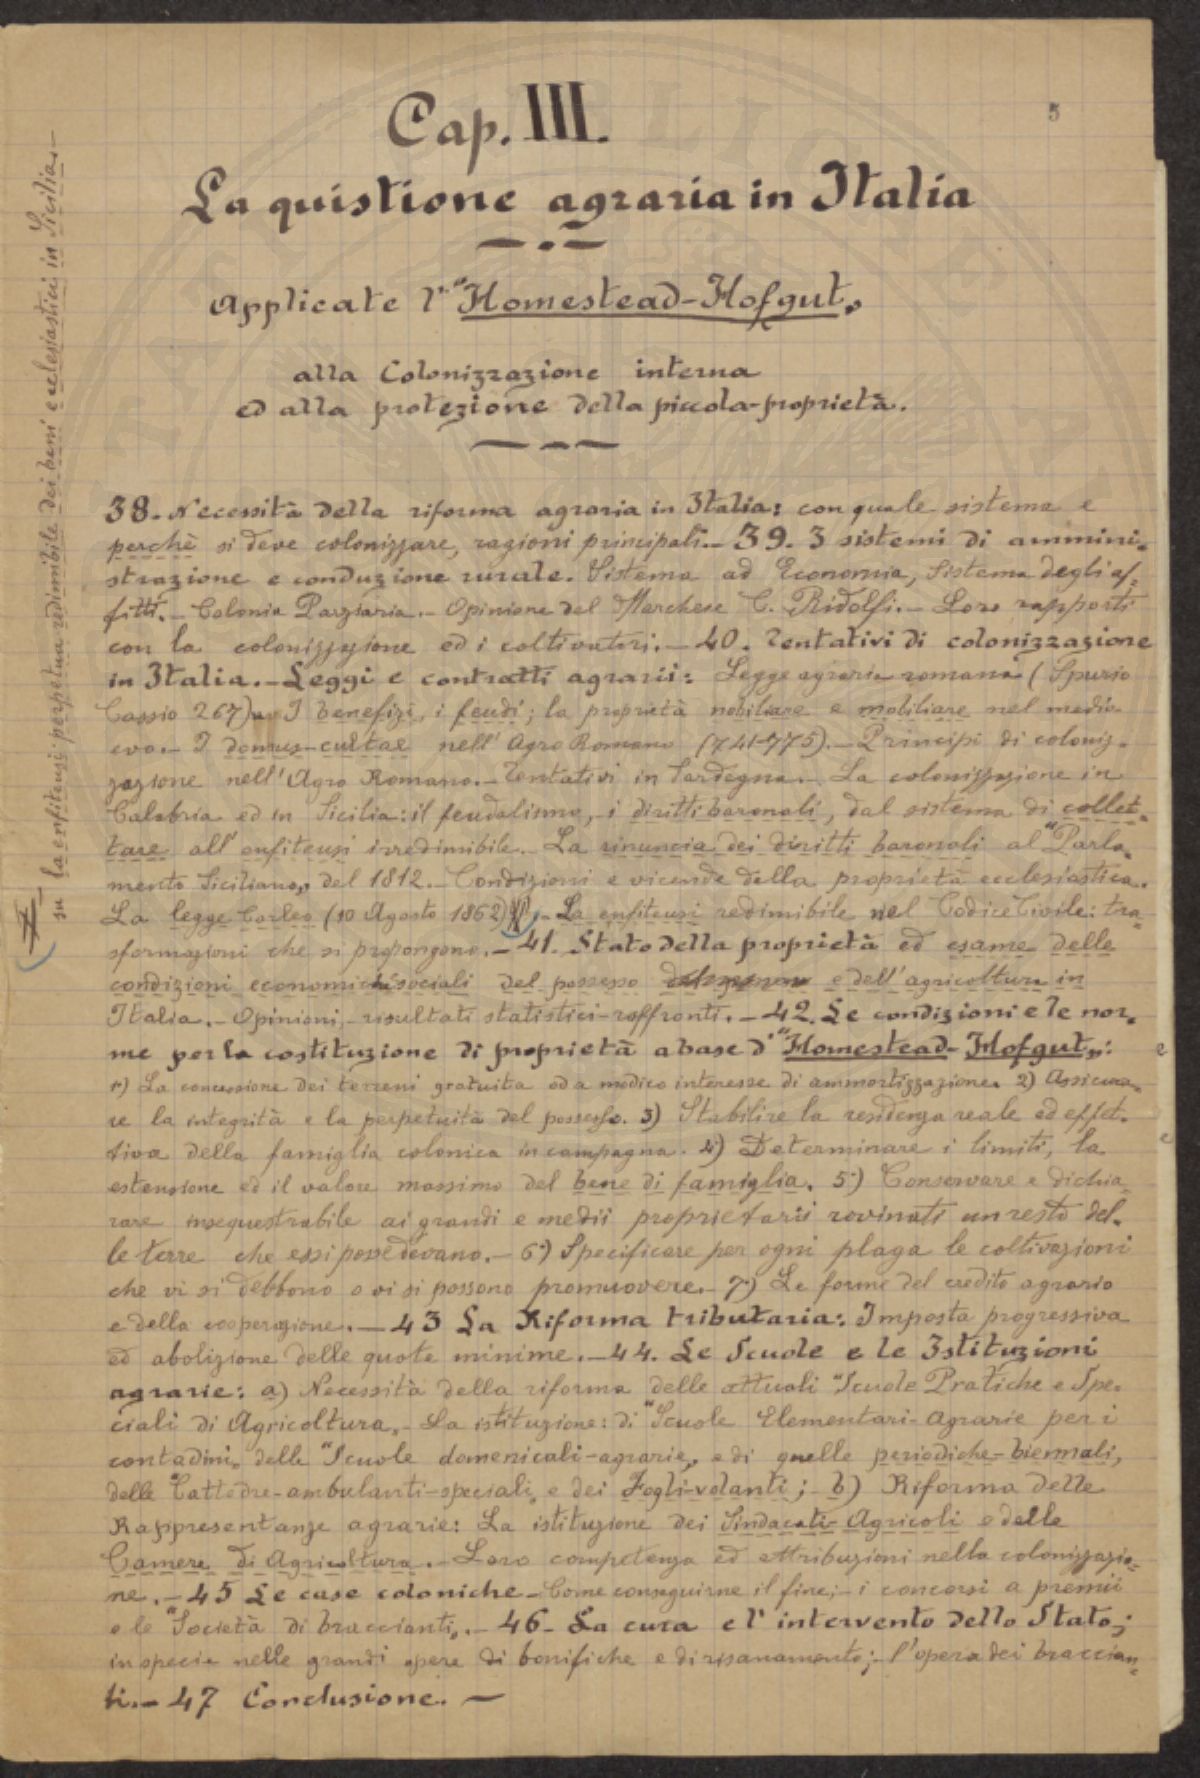 5
Cap. III.
La quistione agraria in Italia
Applicate l'"Homestead-Hofgut„
alla Colonizzazione interna
ed alla protezione della piccola-proprietà.
38. Necessità della riforma agraria in Italia: con quale sistema e
perchè si deve colonizzare, ragioni principali.- 39. 3 sistemi di ammini-
strazione e conduzione rurale. Sistema ad Economia, Sistema degli af-
fitti.- Colonia Parziaria.- Opinione del Marchese C. Ridolfi.- Loro rapporti
con la colonizzazione ed i coltivatori.- 40. Tentativi di colonizzazione
in Italia.- Leggi e contratti agrarii: Legge agraria romana (Spurio
Cassio 267) I benefizi, i feudi; la proprietà nobiliare e mobiliare nel medio
evo.- I domus-cultae nell'Agro Romano (741-775).- Principi di coloniz-
zazione nell'Agro Romano.- Tentativi in Sardegna.- La colonizzazione in
Calabria ed in Sicilia: il feudalismo, i diritti baronali, dal sistema di collet-
tare all'enfiteusi irredimibile.- La rinuncia dei diritti baronali al "Parla-
mento Siciliano„ del 1812.- Condizioni e vicende della proprietà ecclesiastica.
La legge Corleo (10 Agosto 1862) - La enfiteusi redimibile nel Codice Civile: tra-
sformazioni che si propongono.- 41. Stato della proprietà ed esame delle
condizioni economiche sociali del possesso e dell'agricoltura in
Italia.- Opinioni,- risultati statistici-raffronti.- 42. Le condizioni e le nor-
me per la costituzione di proprietà a base d'"Homestead-Hofgut„:
1°) La concessione dei terreni gratuita od a modico interesse di ammortizzazione. 2) Assicura-
re la integrità e la perpetuità del possesso. 3) Stabilire la residenza reale ed effet-
tiva della famiglia colonica in campagna. 4) Determinare i limiti, la
estensione ed il valore massimo del bene di famiglia. 5°) Conservare e dichia-
rare insequestrabile ai grandi e medii proprietarii rovinati un resto del-
le terre che essi possedevano.- 6°) Specificare per ogni plaga le coltivazioni
che vi si debbono o vi si possono promuovere.- 7°) Le forme del credito agrario
e della cooperazione.- 43 La Riforma tributaria: Imposta progressiva
ed abolizione delle quote minime.- 44. Le Scuole e le Istituzioni
agrarie: a) Necessità della riforma delle attuali "Scuole Pratiche e Spe-
ciali di Agricoltura„- La istituzione: di "Scuole Elementari-Agrarie per i
contadini„ delle "Scuole domenicali-agrarie„ e di quelle periodiche-biennali,
delle "Cattedre-ambulanti-speciali„ e dei Fogli-volanti; b) Riforma delle
Rappresentanze agrarie: La istituzione dei Sindacati-Agricoli e delle
Camere di Agricoltura.- Loro competenza ed attribuzioni nella colonizzazio-
ne.- 45 Le case coloniche- Come conseguirne il fine;- i concorsi a premii
e le "Società di braccianti„.- 46- La cura e l'intervento dello Stato;
in specie nelle grandi opere di bonifiche e di risanamento;- l'opera dei braccian-
ti.- 47 Conclusione.-
su la enfiteusi perpetua redimibile dei beni ecclesiastici in Sicilia.-